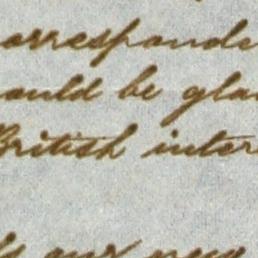 orresponde
ould be gla
British inter
our new